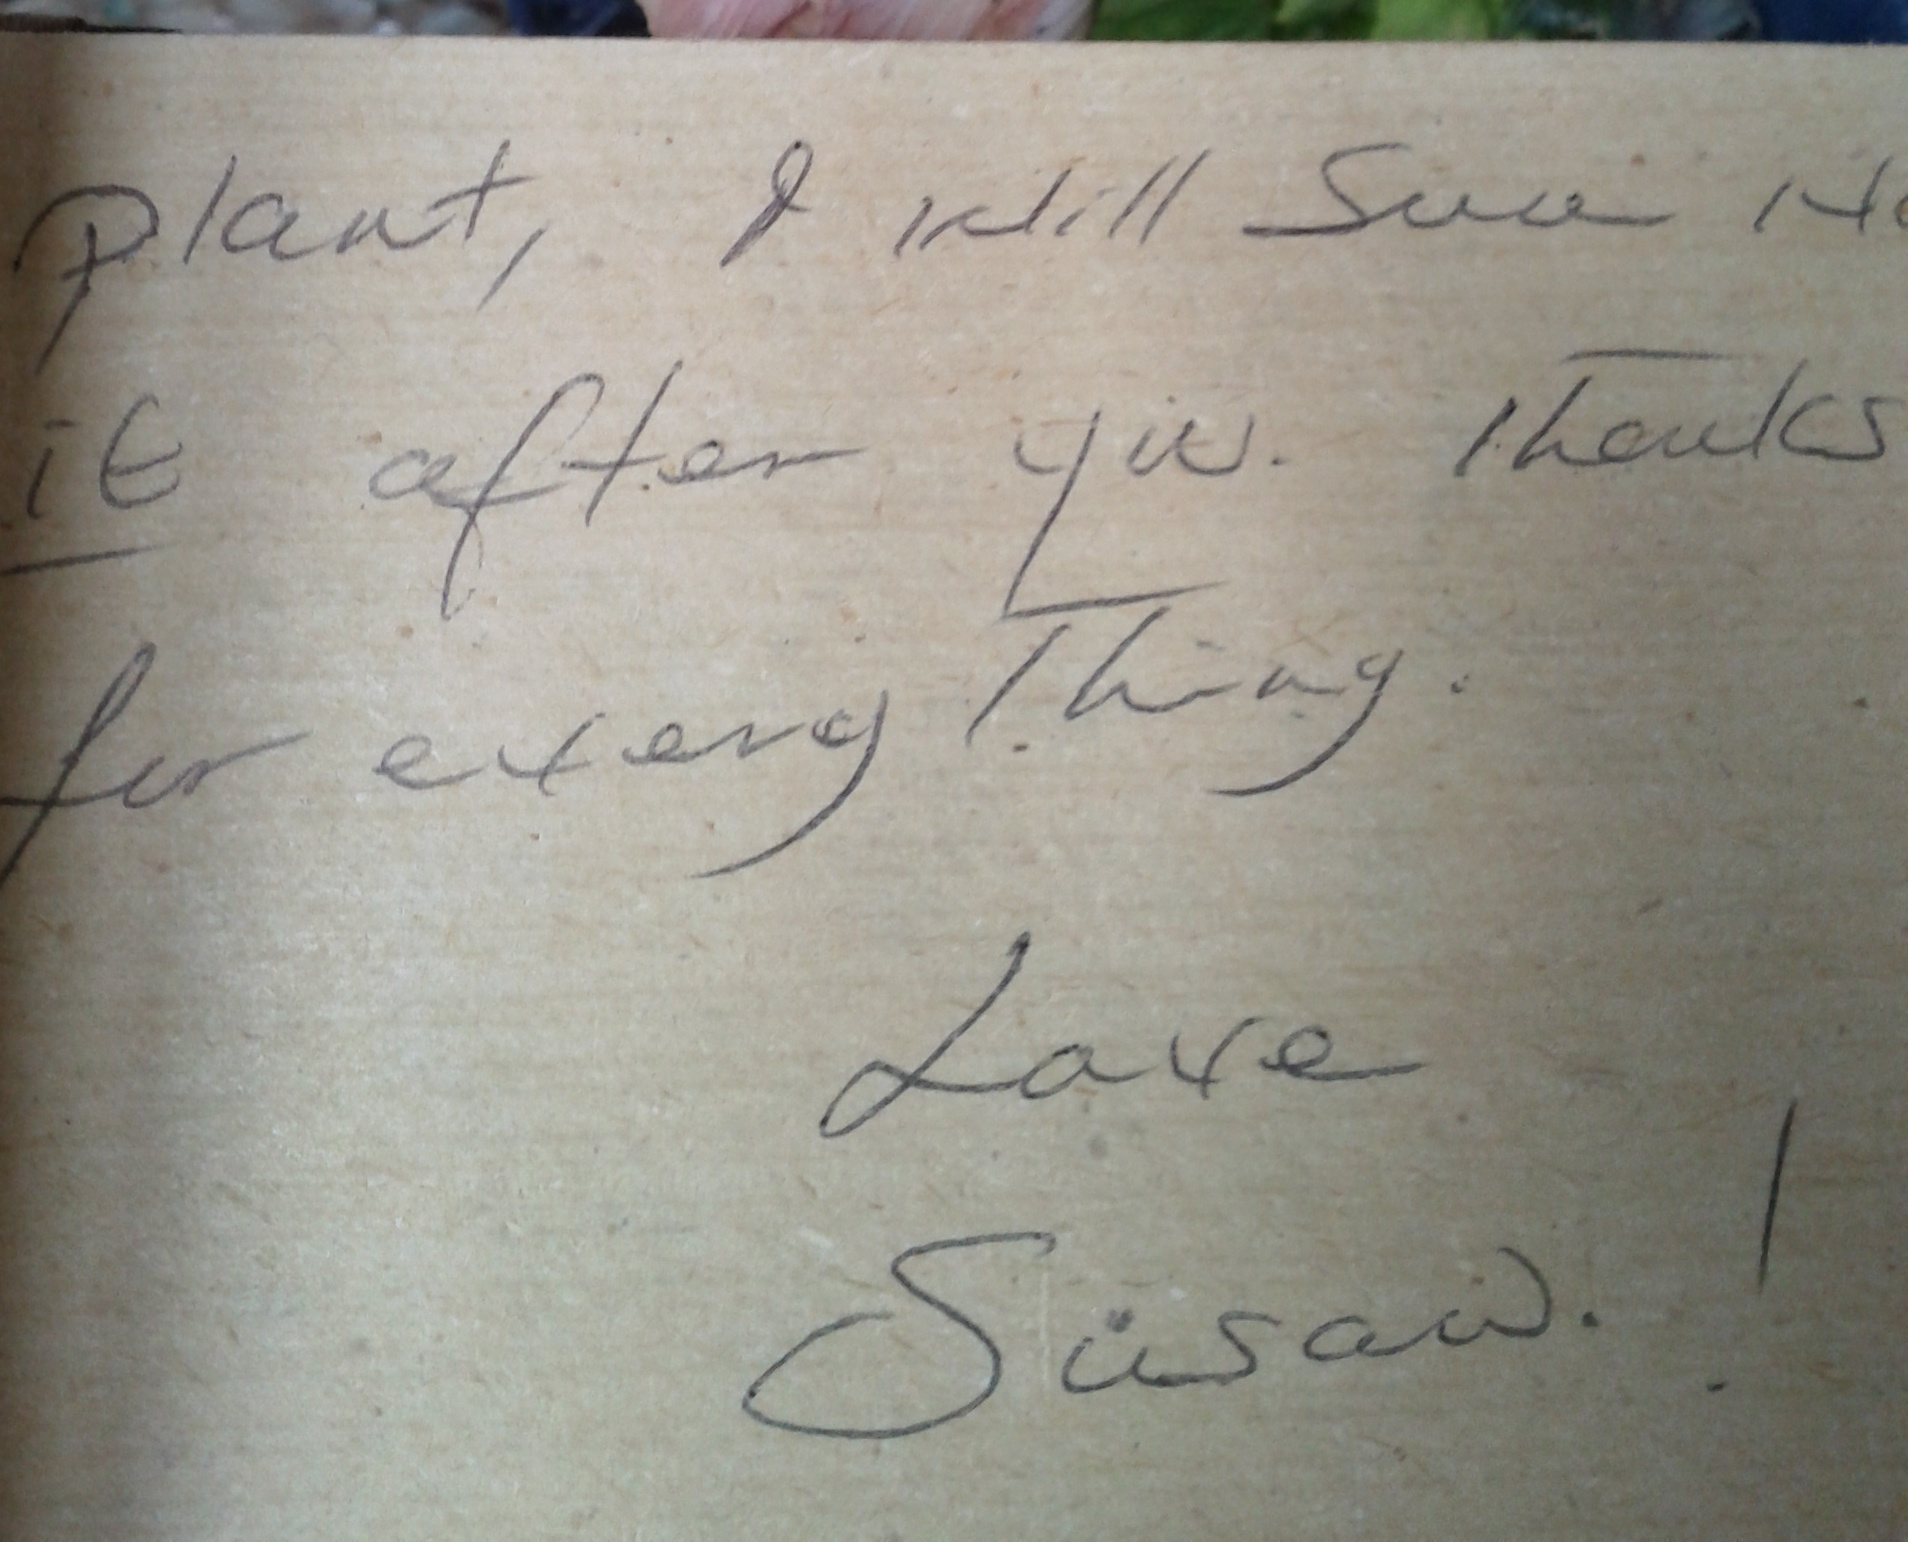 plant, I will
it after you. Thanks
for everything.
Love
Susan. !